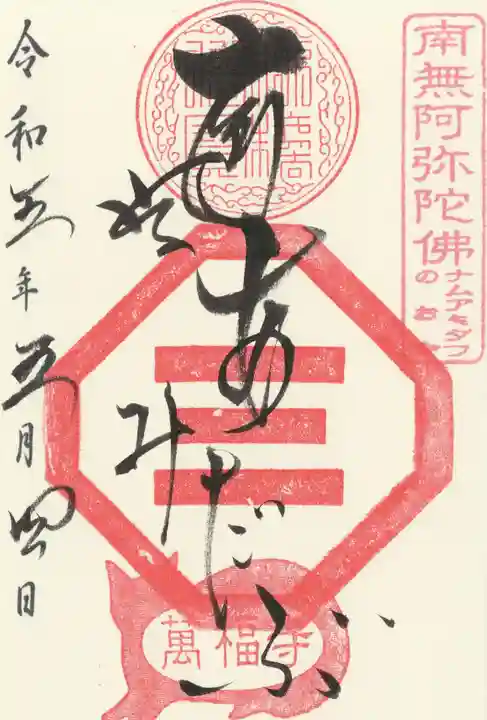 南無阿弥陀佛
ナムアミダブ
のお
南無あみだぶ
令和五年五月四日
萬福寺